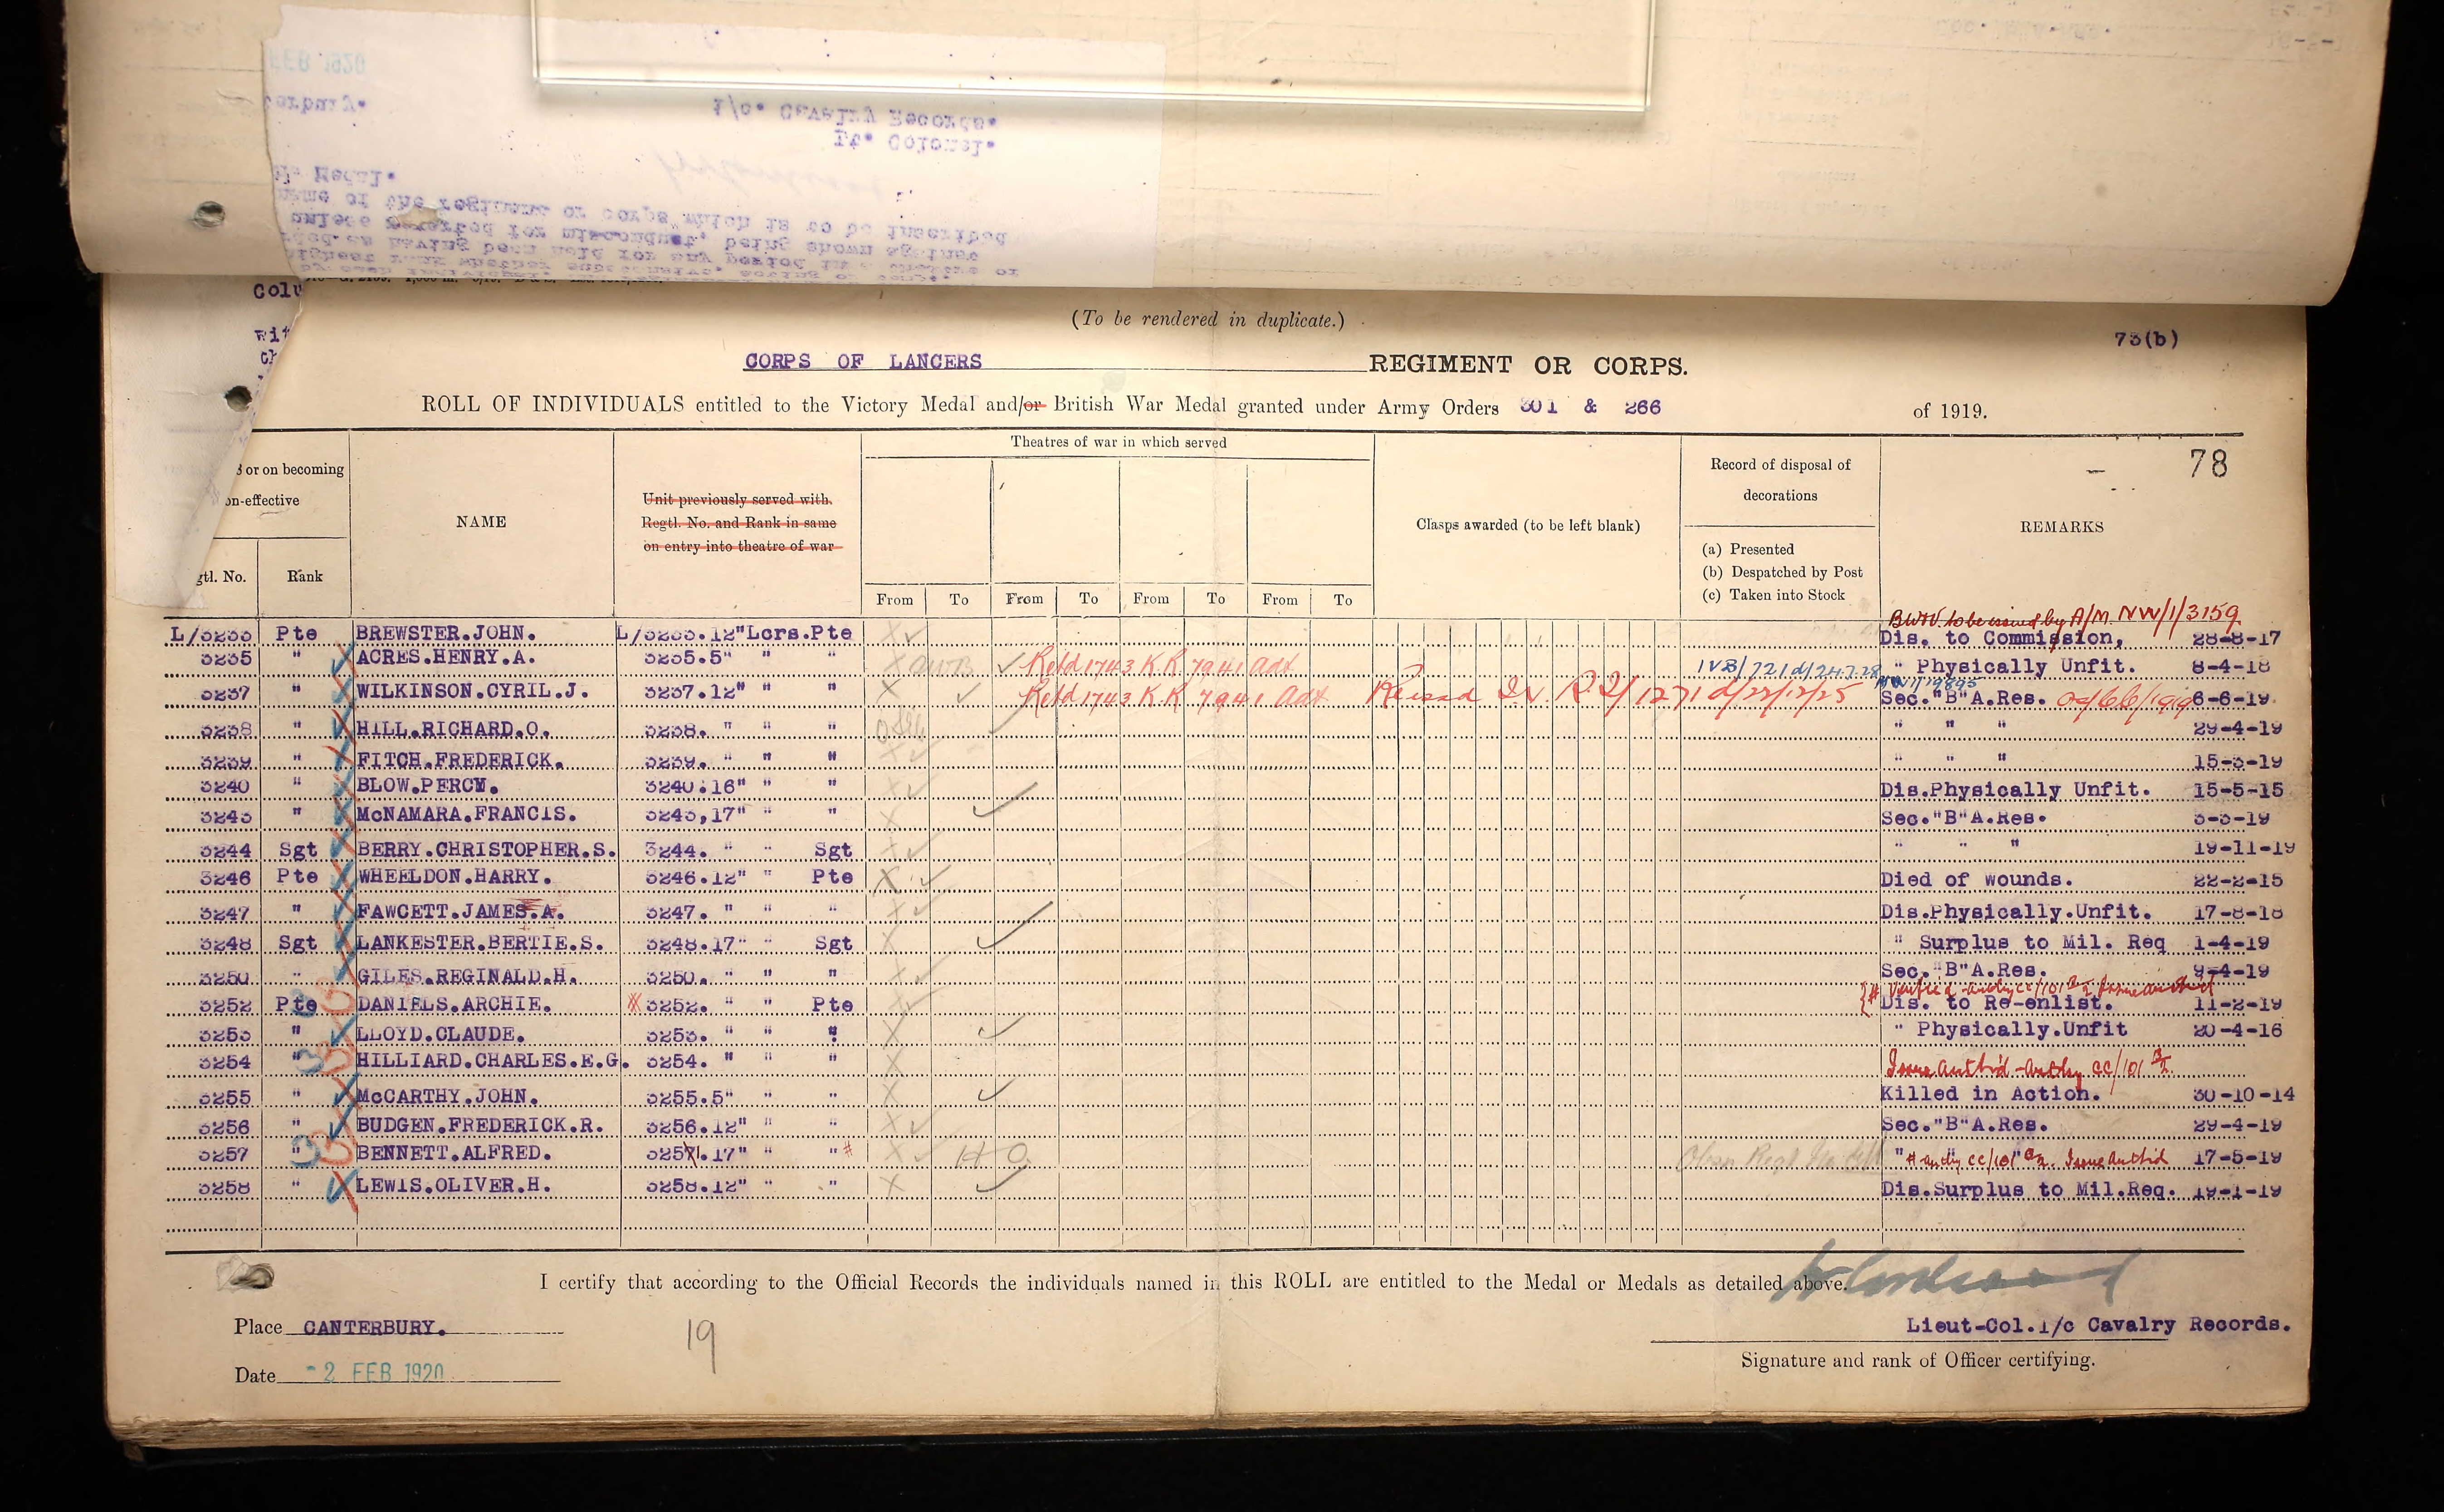 FEB 1920
erbury.
i/c. Cavalry Records.
Lt. Colonel.
Medal.
name of the regiment or corps which is to be inscribed
unless reverted for misconduct, being shown against
having been held for any period in a theatre or
highest rank whether substantive, acting or
Colu
wit
(To be rendered in duplicate.)
73(b)
CORPS OF LANCERS REGIMENT OR CORPS.
ROLL OF INDIVIDUALS entitled to the Victory Medal and/or British War Medal granted under Army Orders 301 & 266 of 1919.
78
or on becoming
on-effective
gtl. No.
Rank
NAME
Unit previously served with.
Regtl. No. and Rank in same
on entry into theatre of war
Theatres of war in which served
From To From To From To From To
Clasps awarded (to be left blank)
Record of disposal of
decorations
(a) Presented
(b) Despatched by Post
(c) Taken into Stock
REMARKS
BWV to be issued by A/M NW/1/3159
L/3233 Pte BREWSTER.JOHN. L/3233.12"Lcrs.Pte Dis. to Commission, 28-8-17
3235 " ACRES.HENRY.A. 3235.5" " " Retd 1743 K.R. 7941 Adt 1VB/721 d/24.7.28 " Physically Unfit. 8-4-18
3237 " WILKINSON.CYRIL.J. 3237.12" " " Retd 1743 K.R 7941 Adt Reissd I.V. R.2/1271 d/22/12/25 Sec."B"A.Res. 6-6-19
3238 " HILL.RICHARD.O. 3238. " " " " " " 29-4-19
3239 " FITCH.FREDERICK. 3239. " " " " " " 15-3-19
3240 " BLOW.PERCY. 3240.16" " " Dis.Physically Unfit. 15-5-15
3243 " McNAMARA.FRANCIS. 3243,17" " " Sec."B"A.Res. 3-3-19
3244 Sgt BERRY.CHRISTOPHER.S. 3244. " " Sgt " " " 19-11-19
3246 Pte WHEELDON.HARRY. 3246.12" " Pte Died of wounds. 22-2-15
3247 " FAWCETT.JAMES.A. 3247. " " " Dis.Physically.Unfit. 17-8-18
3248 Sgt LANKESTER.BERTIE.S. 3248.17" " Sgt " Surplus to Mil. Req 1-4-19
3250 " GILES.REGINALD.H. 3250. " " " Sec."B"A.Res. 9-4-19
3252 Pte DANIELS.ARCHIE. 3252. " " Pte Dis. to Re-enlist. 11-2-19
3253 " LLOYD.CLAUDE. 3253. " " " " Physically.Unfit 20-4-16
3254 " HILLIARD.CHARLES.E.G. 3254. " " " Issue Auth'd - Authy CC/101
3255 " McCARTHY.JOHN. 3255.5" " " Killed in Action. 30-10-14
3256 " BUDGEN.FREDERICK.R. 3256.12" " " Sec."B"A.Res. 29-4-19
3257 " BENNETT.ALFRED. 3257.17" " " " authy CC/101 Issue Authd 17-5-19
3258 " LEWIS.OLIVER.H. 3258.12" " " Dis.Surplus to Mil.Req. 19-1-19
I certify that according to the Official Records the individuals named in this ROLL are entitled to the Medal or Medals as detailed above.
Place CANTERBURY.
19
Lieut-Col.i/c Cavalry Records.
Date - 2 FEB 1920
Signature and rank of Officer certifying.